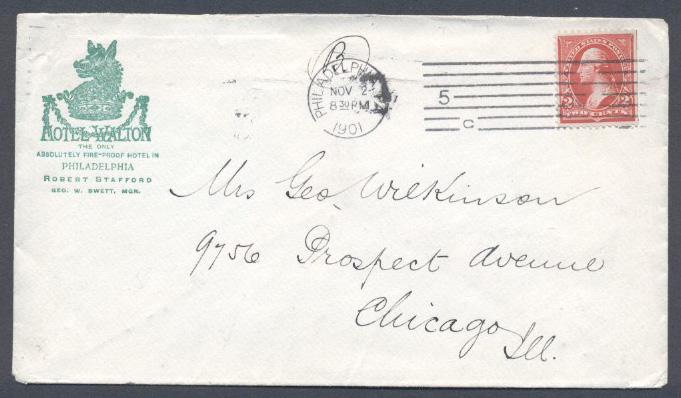 HOTEL WALTON
THE ONLY
ABSOLUTELY FIRE-PROOF HOTEL IN
PHILADELPHIA
ROBERT STAFFORD
GEO. W. SWETT, MGR.
PHILADELPHIA
NOV 2
8 30 PM
1901
5
C
UNITED STATES POSTAGE
2 2
TWO CENTS
Mrs Geo Wilkinson
9756 Prospect Avenue
Chicago
Ill.